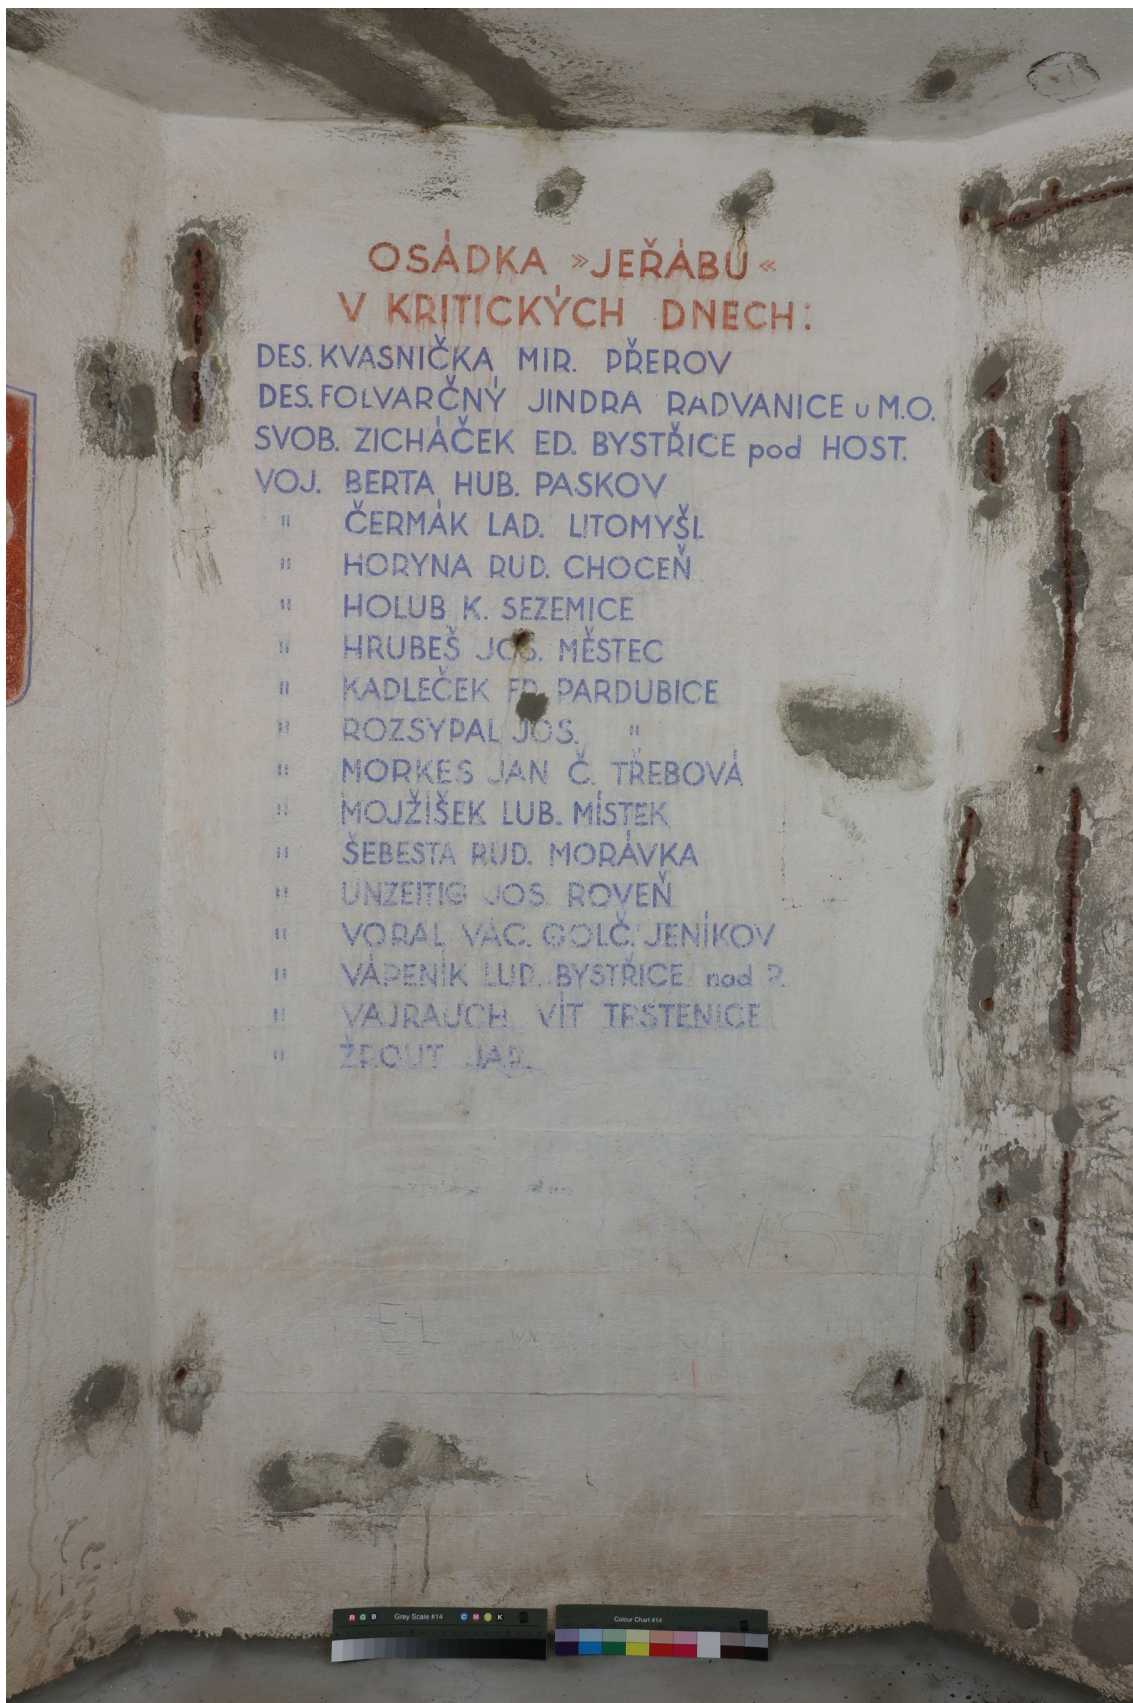 OSÁDKA »JEŘÁBU«
V KRITICKÝCH DNECH:
DES. KVASNIČKA MIR. PŘEROV
DES. FOLVARČNÝ JINDRA RADVANICE u M.O.
SVOB. ZICHÁČEK ED. BYSTŘICE pod HOST.
VOJ. BERTA HUB. PASKOV
" ČERMÁK LAD. LITOMYŠL
" HORYNA RUD. CHOCEŇ
" HOLUB K. SEZEMICE
" HRUBEŠ JOS. MĚSTEC
" KADLEČEK FR. PARDUBICE
" ROZSYPAL JOS. "
" MORKES JAN Č. TŘEBOVÁ
" MOJŽÍŠEK LUB. MÍSTEK
" ŠEBESTA RUD. MORÁVKA
" UNZEITIG JOS. ROVEŇ
" VORAL VÁC. GOLČ. JENÍKOV
" VÁPENÍK LUD. BYSTŘICE nad P.
" VAJRAUCH VÍT TRSTENICE
" ŽROUT JAR.
EL WN
R G B Grey Scale #14 C M Y K
Colour Chart #14